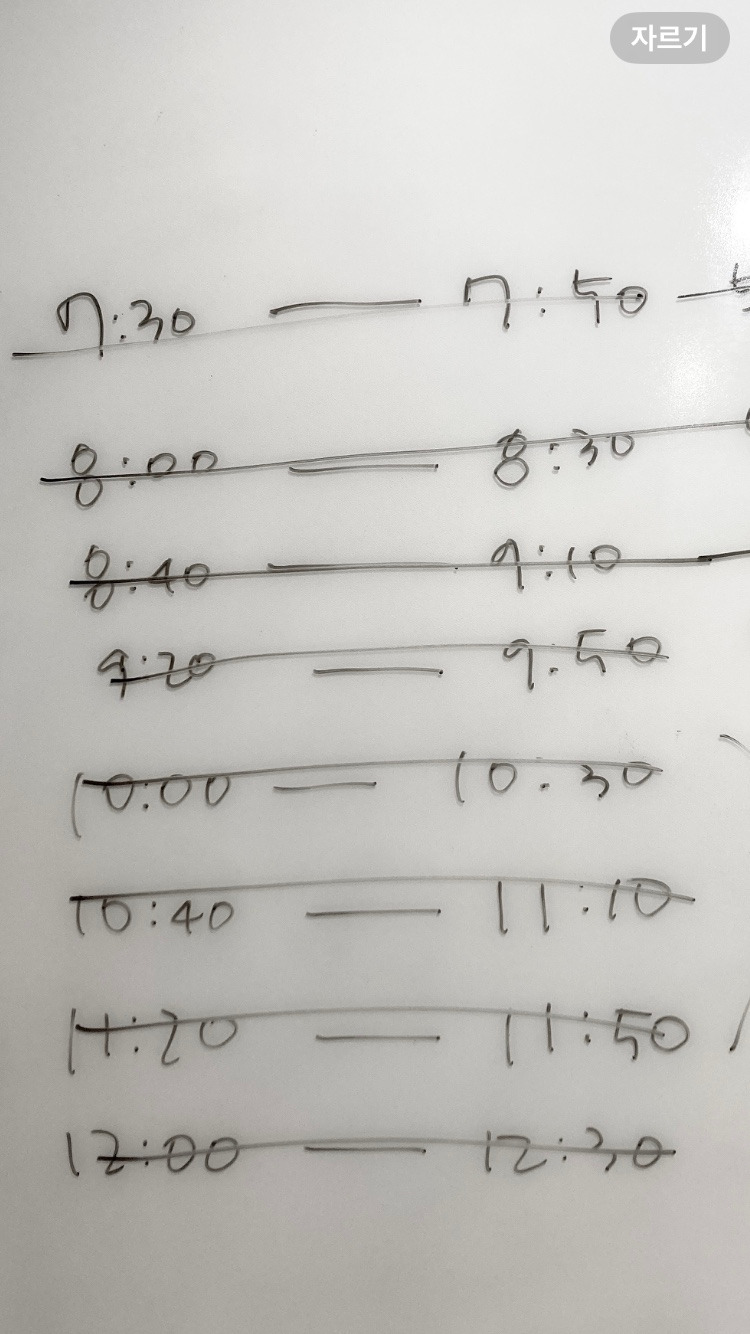 자르기
7:30 — 7:50 —
8:00 — 8:30
8:40 — 9:10
9:20 — 9.50
10:00 — 10.30
10:40 — 11:10
11:20 — 11:50
12:00 — 12:30